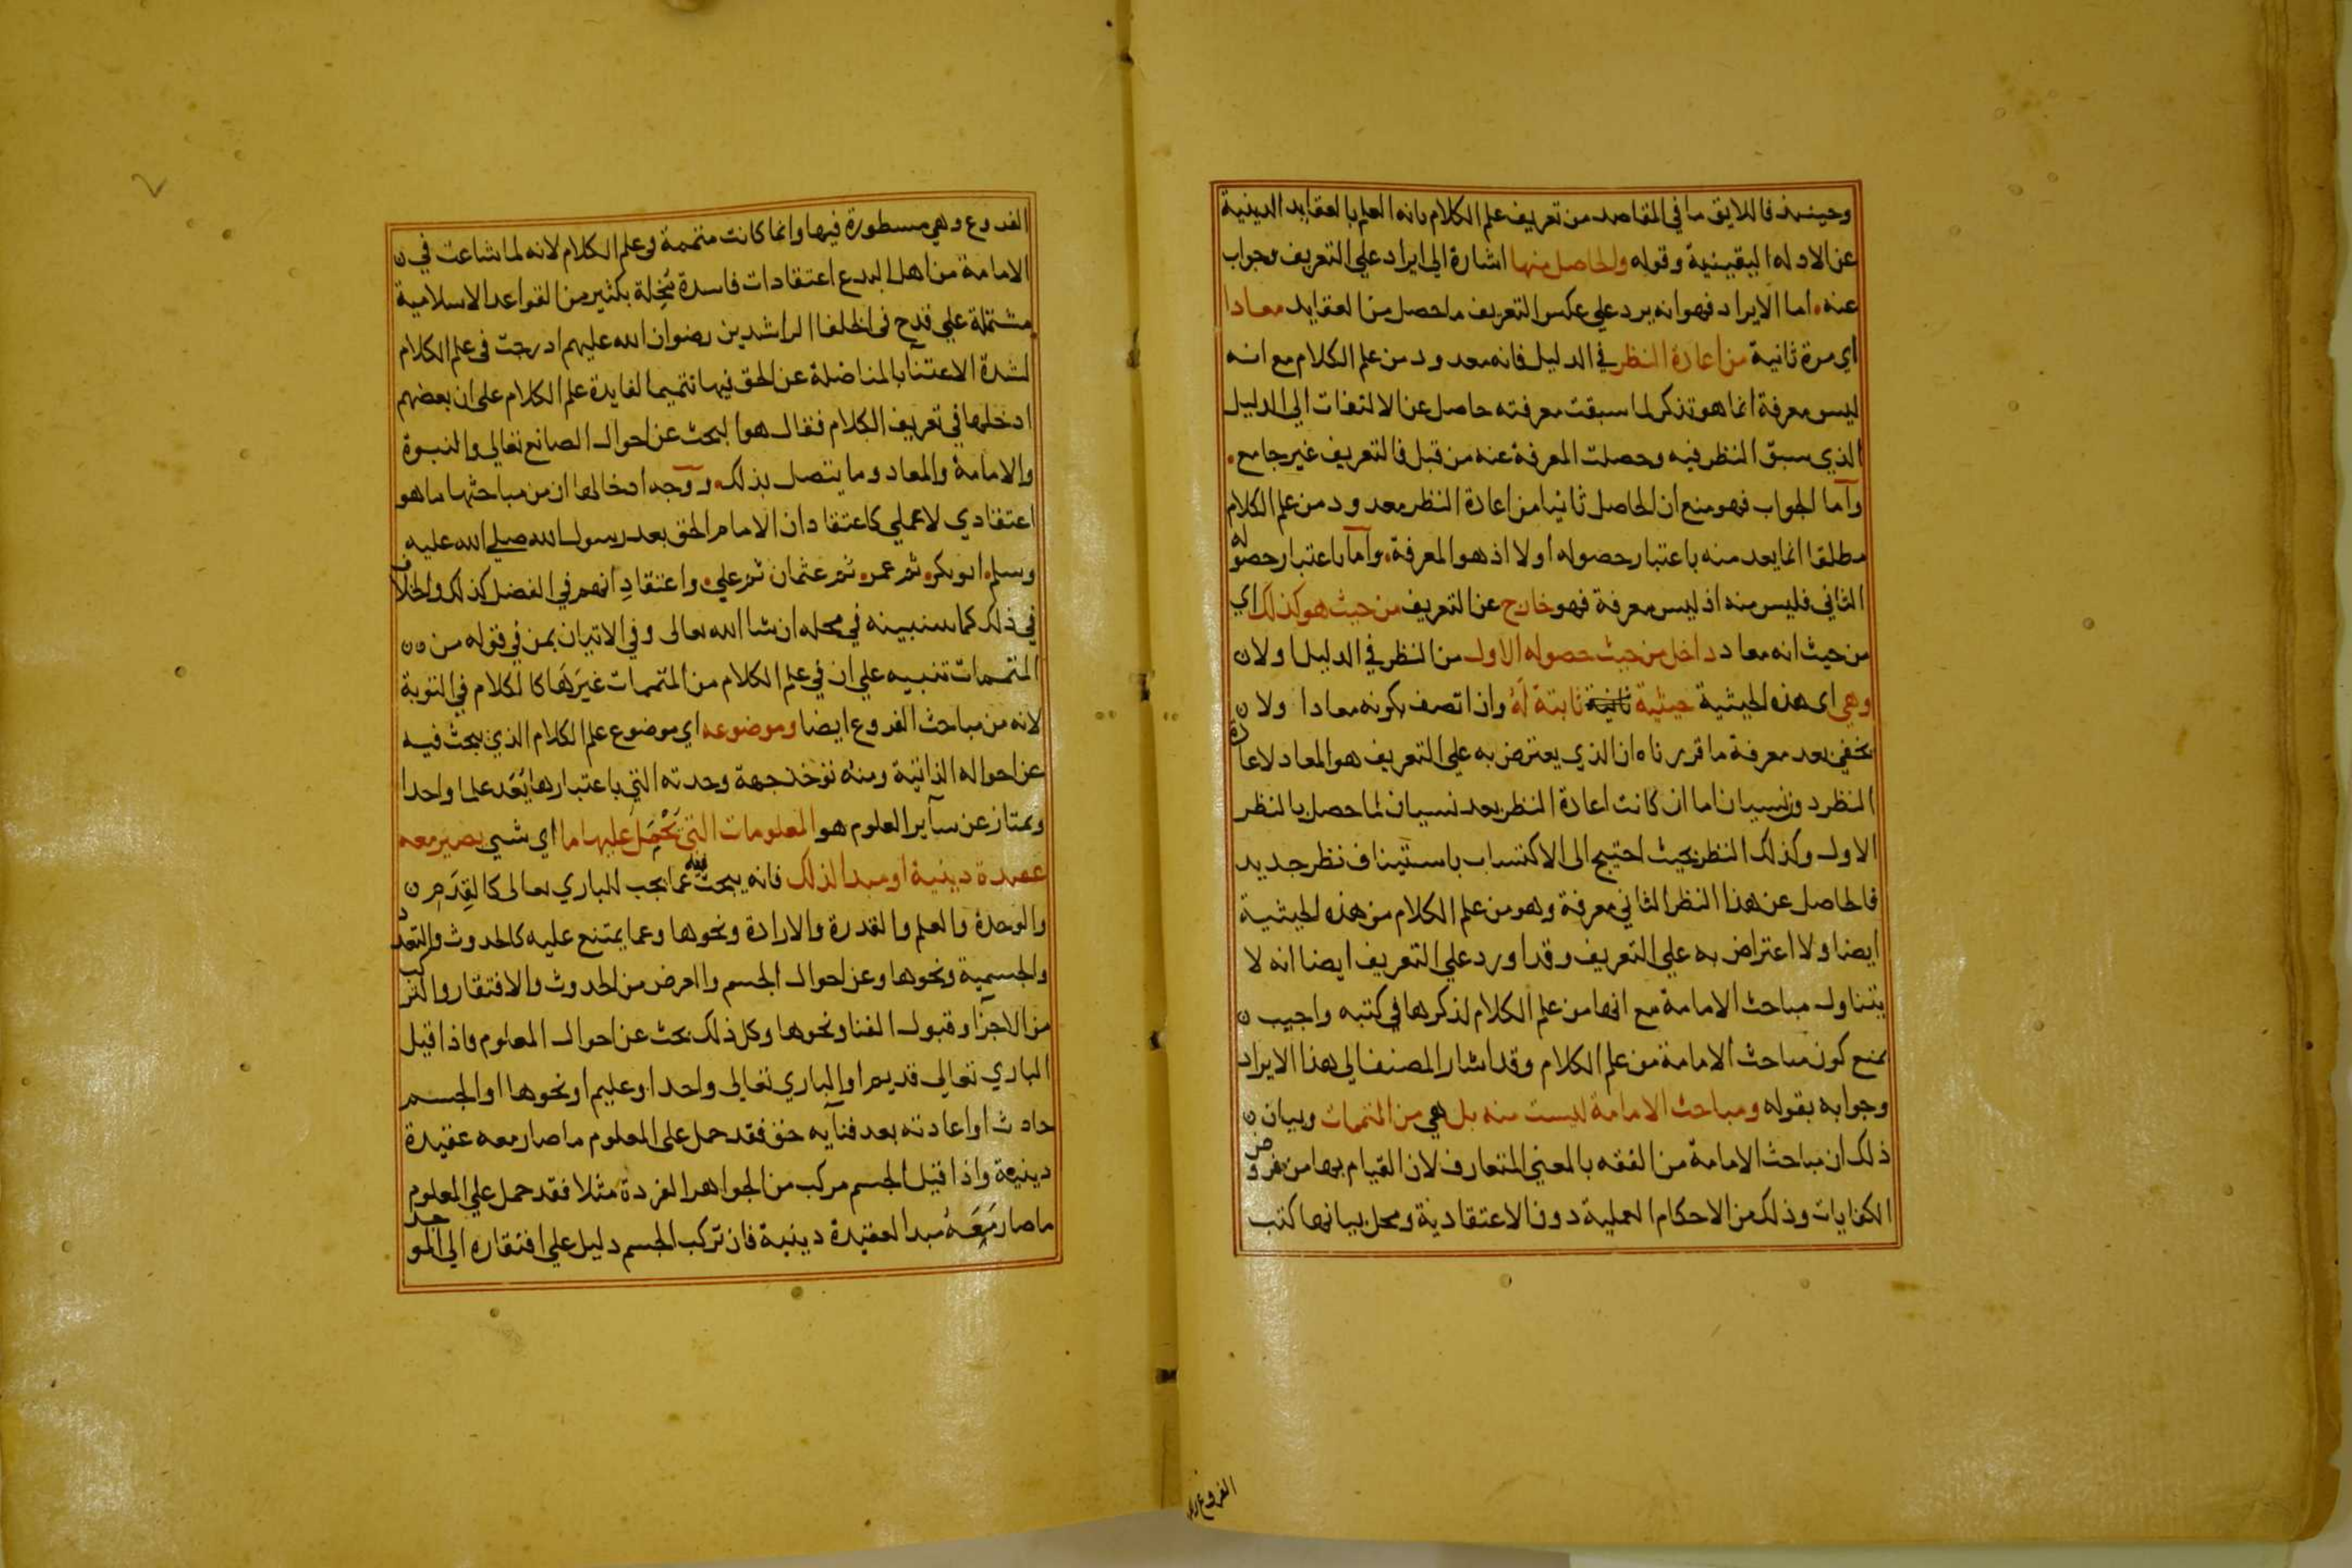 وحينئذ فاللايق ما في المقاصد من تعريف علم الكلام بانه العلم بالعقايد الدينية
عن الادله اليقينية وقوله والحاصل منها اشارة الي ايراد علي التعريف وجواب
عنه اما الايراد فهو انه يرد علي عكس التعريف ما حصل من العقايد معادا
اي مرة ثانية من اعادة النظر في الدليل فانه معدود من علم الكلام مع انه
ليس معرفة انما هو تذكر لما سبقت معرفته حاصل عن الالتفات الي الدليل
الذي سبق النظر فيه وحصلت المعرفة عنه من قبل فالتعريف غير جامع
واما الجواب فهو منع ان الحاصل ثانيا من اعادة النظر معدود من علم الكلام
مطلقا انما يعد منه باعتبار حصوله اولا اذ هو المعرفة واما باعتبار حصوله
الثاني فليس منه اذ ليس معرفة فهو خارج عن التعريف من حيث هو كذلك اي
من حيث انه معاد داخل من حيث حصوله الاول من النظر في الدليل اولا ن
وهي اي هذه الحيثية حيثية ثانية ثابتة له وان اتصف بكونه معادا ولا ن
يخفي بعد معرفة ما قررناه ان الذي يعترض به علي التعريف هو المعاد لاعادة
النظر دون نسيان اما ان كانت اعادة النظر بعد نسيان لما حصل بالنظر
الاول وكذلك النظر بحيث احتيج الي الاكتساب باستيناف نظر جديد
فالحاصل عن هذا النظر الثاني معرفة وهو من علم الكلام من هذه الحيثية
ايضا ولا اعتراض به علي التعريف وقد اورد علي التعريف ايضا انه لا
يتناول مباحث الامامة مع انها من علم الكلام لذكرها في كتبه واجيب ن
بمنع كون مباحث الامامة من علم الكلام وقد اشار المصنف الي هذا الايراد
وجوابه بقوله ومباحث الامامة ليست منه بل هي من المتممات وبيان ن
ذلك ان مباحث الامامة من الفقه بالمعني المتعارف لان القيام بها من فروض
الكفايات وذلك من الاحكام العملية دون الاعتقادية ومحل بيانها كتب
الفروع وهي
الفروع وهي مسطورة فيها وانما كانت متممة في علم الكلام لانه لما شاعت في ن
الامامة من اهل البدع اعتقادات فاسدة مخلة بكثير من القواعد الاسلامية
مشتملة علي قدح في الخلفا الراشدين رضوان الله عليهم ادرجت في علم الكلام
لشدة الاعتنا بالمناضلة عن الحق فيها تتميما لفايدة علم الكلام علي ان بعضهم
ادخلها في تعريف الكلام فقال هو البحث عن احوال الصانع تعالي والنبوة
والامامة والمعاد وما يتصل بذلك ووجه ادخالها ان من مباحثها ما هو
اعتقادي لا عملي كاعتقاد ان الامام الحق بعد رسول الله صلي الله عليه
وسلم ابو بكر ثم عمر ثم عثمان ثم علي واعتقاد انهم في الفضل كذلك والخلاف
في ذلك كما سنبينه في محله ان شا الله تعالي وفي الاتيان بمن في قوله من ن
المتممات تنبيه علي ان في علم الكلام من المتممات غيرها كالكلام في التوبة
لانه من مباحث الفروع ايضا وموضوعه اي موضوع علم الكلام الذي يبحث فيه
عن احواله الذاتية ومنه توخذ جهة وحدته التي باعتبارها يعد علما واحدا
ويمتاز عن سآير العلوم هو المعلومات التي يحمل عليها ما اي شي يصير معه
عقيدة دينية او مبدا لذلك فانه يبحث فيه عما يجب للباري تعالي كالقدم ن
والوحدة والعلم والقدرة والارادة ونحوها وعما يمتنع عليه كالحدوث والتعدد
والجسمية ونحوها وعن احوال الجسم والعرض من الحدوث والافتقار والتركب
من الاجزا وقبول الفنا ونحوها وكل ذلك بحث عن احوال المعلوم فاذا قيل
الباري تعالي قديم او الباري تعالي واحد او عليم او نحوها او الجسم
حادث او اعادته بعد فنآيه حق فقد حمل علي المعلوم ما صار معه عقيدة
دينية واذا قيل الجسم مركب من الجواهر الفردة مثلا فقد حمل علي المعلوم
ما صار معه مبدا لعقيدة دينية فان تركب الجسم دليل علي افتقاره الي الموجد